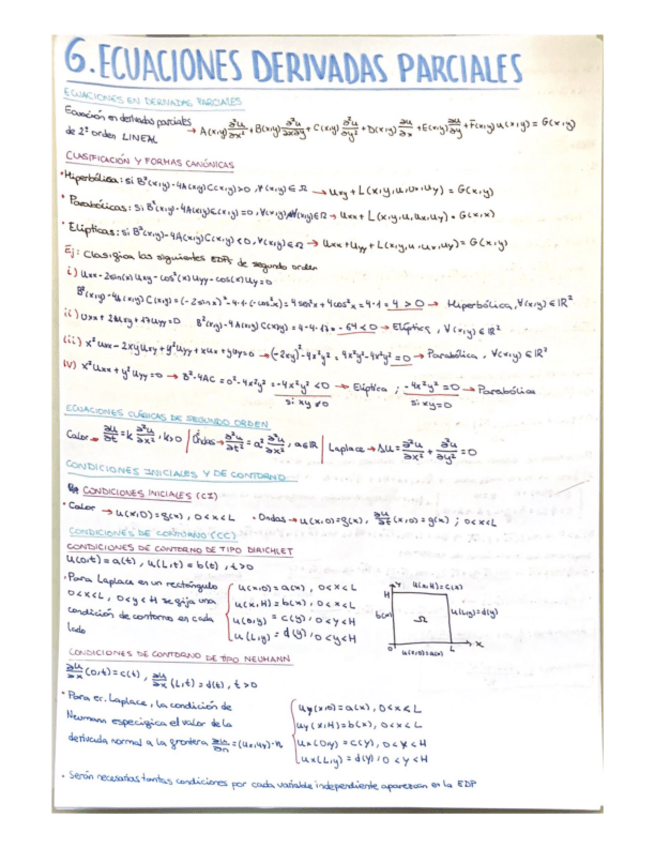 6. ECUACIONES DERIVADAS PARCIALES
ECUACIONES EN DERIVADAS PARCIALES
Ecuación en derivadas parciales de 2º orden LINEAL → A(x,y) ∂²u/∂x² + B(x,y) ∂²u/∂x∂y + C(x,y) ∂²u/∂y² + D(x,y) ∂u/∂x + E(x,y) ∂u/∂y + F(x,y) u(x,y) = G(x,y)
CLASIFICACIÓN Y FORMAS CANÓNICAS
• Hiperbólica: si B²(x,y)-4A(x,y)C(x,y)>0, ∀(x,y)∈Ω → Uxy + L(x,y,u,ux,uy) = G(x,y)
• Parabólicas: si B²(x,y)-4A(x,y)C(x,y)=0, ∀(x,y)∈Ω → Uxx + L(x,y,u,ux,uy) = G(x,x)
• Elípticas: si B²(x,y)-4A(x,y)C(x,y)<0, ∀(x,y)∈Ω → Uxx+Uyy + L(x,y,u,ux,uy) = G(x,y)
Ej: Clasifica las siguientes EDPs de segundo orden
i) Uxx-2sen(x)Uxy-cos²(x)Uyy-cos(x)Uy=0
B²(x,y)-4A(x,y)C(x,y)=(-2senx)²-4·1·(-cos²x)=4sen²x+4cos²x=4·1=4>0 → Hiperbólica, ∀(x,y)∈ℝ²
ii) Uxx+2Uxy+17Uyy=0 B²(x,y)-4A(x,y)C(x,y)=4-4·17=-64<0 → Elíptica, ∀(x,y)∈ℝ²
iii) x²Uxx-2xyUxy+y²Uyy+xUx+yUy=0 → (-2xy)²-4x²y²=4x²y²-4x²y²=0 → Parabólica, ∀(x,y)∈ℝ²
iv) x²Uxx+y²Uyy=0 → B²-4AC=0²-4x²y²=-4x²y²<0 → Elíptica; -4x²y²=0 → Parabólica
si xy≠0 si xy=0
ECUACIONES CLÁSICAS DE SEGUNDO ORDEN
Calor → ∂u/∂t = k ∂²u/∂x², k>0 | Ondas → ∂²u/∂t² = a² ∂²u/∂x², a∈ℝ | Laplace → Δu = ∂²u/∂x² + ∂²u/∂y² = 0
CONDICIONES INICIALES Y DE CONTORNO
CONDICIONES INICIALES (CI)
• Calor → u(x,0)=f(x), 0<x<L • Ondas → u(x,0)=f(x), ∂u/∂t (x,0)=g(x); 0<x<L
CONDICIONES DE CONTORNO (CC)
CONDICIONES DE CONTORNO DE TIPO DIRICHLET
u(0,t)=a(t), u(L,t)=b(t), t>0
• Para Laplace en un rectángulo
0<x<L, 0<y<H se fija una
condición de contorno en cada
lado
u(x,0)=a(x), 0<x<L
u(x,H)=b(x), 0<x<L
u(0,y)=c(y), 0<y<H
u(L,y)=d(y), 0<y<H
Y u(x,H)=c(x)
H
b(x) Ω u(L,y)=d(y)
0 u(x,0)=a(x) L X
CONDICIONES DE CONTORNO DE TIPO NEUMANN
∂u/∂x (0,t)=c(t), ∂u/∂x (L,t)=d(t), t>0
• Para ec. Laplace, la condición de
Neumann especifica el valor de la
derivada normal a la frontera ∂u/∂n=(ux,uy)·n
uy(x,0)=a(x), 0<x<L
uy(x,H)=b(x), 0<x<L
ux(0,y)=c(y), 0<y<H
ux(L,y)=d(y), 0<y<H
• Serán necesarias tantas condiciones por cada variable independiente aparezcan en la EDP